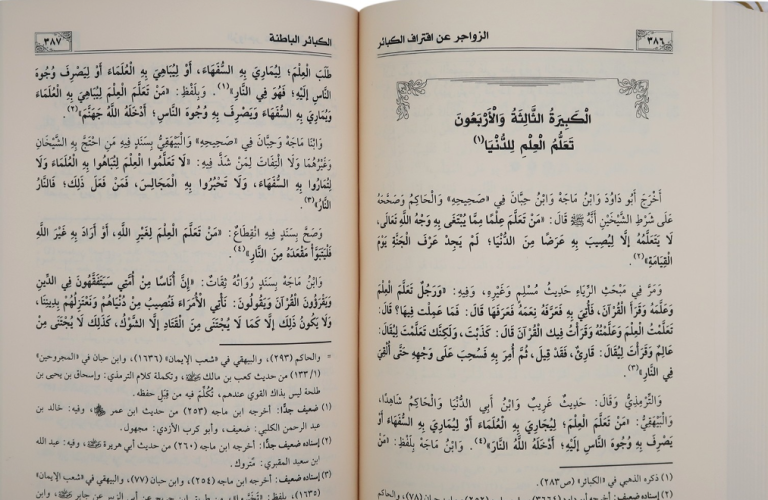 ٣٨٦
الزواجر عن اقتراف الكبائر
الْكَبِيرَةُ الثَّالِثَةُ وَالْأَرْبَعُونَ
تَعَلُّمُ الْعِلْمِ لِلدُّنْيَا(١)
أَخْرَجَ أَبُو دَاوُدَ وَابْنُ مَاجَهْ وَابْنُ حِبَّانَ فِي «صَحِيحِهِ» وَالْحَاكِمُ وَصَحَّحَهُ
عَلَى شَرْطِ الشَّيْخَيْنِ أَنَّهُ ﷺ قَالَ: «مَنْ تَعَلَّمَ عِلْمًا مِمَّا يُبْتَغَى بِهِ وَجْهُ اللَّهِ تَعَالَى،
لَا يَتَعَلَّمُهُ إِلَّا لِيُصِيبَ بِهِ عَرَضًا مِنَ الدُّنْيَا؛ لَمْ يَجِدْ عَرْفَ الْجَنَّةِ يَوْمَ
الْقِيَامَةِ»(٢).
وَمَرَّ فِي مَبْحَثِ الرِّيَاءِ حَدِيثُ مُسْلِمٍ وَغَيْرِهِ، وَفِيهِ: «وَرَجُلٌ تَعَلَّمَ الْعِلْمَ
وَعَلَّمَهُ وَقَرَأَ الْقُرْآنَ، فَأُتِيَ بِهِ فَعَرَّفَهُ نِعَمَهُ فَعَرَفَهَا قَالَ: فَمَا عَمِلْتَ فِيهَا؟ قَالَ:
تَعَلَّمْتُ الْعِلْمَ وَعَلَّمْتُهُ وَقَرَأْتُ فِيكَ الْقُرْآنَ قَالَ: كَذَبْتَ، وَلَكِنَّكَ تَعَلَّمْتَ لِيُقَالَ:
عَالِمٌ وَقَرَأْتَ لِيُقَالَ: قَارِئٌ، فَقَدْ قِيلَ، ثُمَّ أُمِرَ بِهِ فَسُحِبَ عَلَى وَجْهِهِ حَتَّى أُلْقِيَ
فِي النَّارِ»(٣).
وَالتِّرْمِذِيُّ وَقَالَ: حَدِيثٌ غَرِيبٌ وَابْنُ أَبِي الدُّنْيَا وَالْحَاكِمُ شَاهِدًا،
وَالْبَيْهَقِيُّ: «مَنْ تَعَلَّمَ الْعِلْمَ؛ لِيُجَارِيَ بِهِ الْعُلَمَاءَ أَوْ لِيُمَارِيَ بِهِ السُّفَهَاءَ أَوْ
يَصْرِفَ بِهِ وُجُوهَ النَّاسِ إِلَيْهِ؛ أَدْخَلَهُ اللَّهُ النَّارَ»(٤). وَابْنُ مَاجَهْ بِلَفْظِ: «مَنْ
(١) ذكره الذهبي في «الكبائر» (ص٢٨٣).
٣٨٧
الكبائر الباطنة
طَلَبَ الْعِلْمَ؛ لِيُمَارِيَ بِهِ السُّفَهَاءَ، أَوْ لِيُبَاهِيَ بِهِ الْعُلَمَاءَ أَوْ لِيَصْرِفَ وُجُوهَ
النَّاسِ إِلَيْهِ؛ فَهُوَ فِي النَّارِ»(١). وَبِلَفْظِ: «مَنْ تَعَلَّمَ الْعِلْمَ لِيُبَاهِيَ بِهِ الْعُلَمَاءَ
وَيُمَارِيَ بِهِ السُّفَهَاءَ وَيَصْرِفَ بِهِ وُجُوهَ النَّاسِ؛ أَدْخَلَهُ اللَّهُ جَهَنَّمَ»(٢).
وَابْنَا مَاجَهْ وَحِبَّانَ فِي «صَحِيحِهِ» وَالْبَيْهَقِيُّ بِسَنَدٍ فِيهِ مَنِ احْتَجَّ بِهِ الشَّيْخَانِ
وَغَيْرُهُمَا وَلَا الْتِفَاتَ لِمَنْ شَذَّ فِيهِ: «لَا تَعَلَّمُوا الْعِلْمَ لِتُبَاهُوا بِهِ الْعُلَمَاءَ وَلَا
لِتُمَارُوا بِهِ السُّفَهَاءَ، وَلَا تَخَيَّرُوا بِهِ الْمَجَالِسَ، فَمَنْ فَعَلَ ذَلِكَ؛ فَالنَّارُ
النَّارُ»(٣).
وَصَحَّ بِسَنَدٍ فِيهِ انْقِطَاعٌ: «مَنْ تَعَلَّمَ الْعِلْمَ لِغَيْرِ اللَّهِ، أَوْ أَرَادَ بِهِ غَيْرَ اللَّهِ
فَلْيَتَبَوَّأْ مَقْعَدَهُ مِنَ النَّارِ»(٤).
وَابْنُ مَاجَهْ بِسَنَدٍ رُوَاتُهُ ثِقَاتٌ: «إِنَّ أُنَاسًا مِنْ أُمَّتِي سَيَتَفَقَّهُونَ فِي الدِّينِ
وَيَقْرَؤُونَ الْقُرْآنَ وَيَقُولُونَ: نَأْتِي الْأُمَرَاءَ، فَنُصِيبُ مِنْ دُنْيَاهُمْ وَنَعْتَزِلُهُمْ بِدِينِنَا،
وَلَا يَكُونُ ذَلِكَ إِلَّا كَمَا لَا يُجْتَنَى مِنَ الْقَتَادِ إِلَّا الشَّوْكُ، كَذَلِكَ لَا يُجْتَنَى مِنْ
= والحاكم (٢٩٣)، والبيهقي في «شعب الإيمان» (١٦٣٦)، وابن حبان في «المجروحين»
(١/١٣٣) من حديث كعب بن مالك، وتكملة كلام الترمذي: وإسحاق بن يحيى بن
طلحة ليس بذاك القوي عندهم، تُكُلِّمَ فيه من قِبَلِ حفظه.
(١) ضعيف جدًّا: أخرجه ابن ماجه (٢٥٣) من حديث ابن عمر، وفيه: خالد بن
عبد الرحمن الكلبي: ضعيف، وأبو كرب الأزدي: مجهول.
(٢) إسناده ضعيف جدًّا: أخرجه ابن ماجه (٢٦٠) من حديث أبي هريرة، وفيه: عبد الله
ابن سعيد المقبري: متروك.
(٣) إسناده ضعيف: أخرجه ابن ماجه (٢٥٤)، وابن حبان (٧٧)، والبيهقي في «شعب الإيمان»